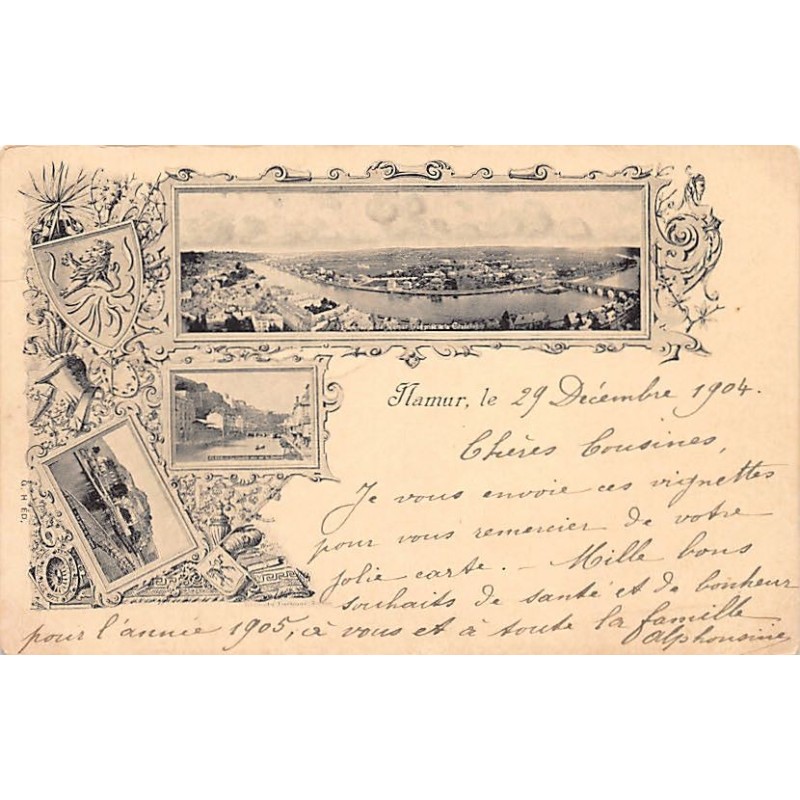 Namur, le 29 Décembre 1904.
Chères Cousines,
Je vous envoie ces vignettes
pour vous remercier de votre
jolie carte. — Mille bons
souhaits de santé et de bonheur
pour l'année 1905, à vous et à toute la famille
Alphonsine
G. H. ED.